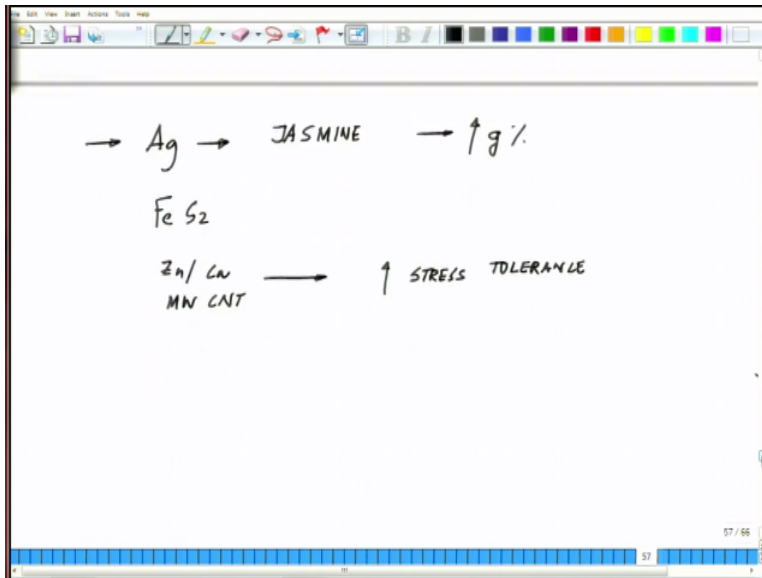 File Edit View Insert Actions Tools Help
B I
→ Ag → JASMINE → ↑ g %
FeS2
Zn/Cu → ↑ STRESS TOLERANCE
MW CNT
57 / 66
57